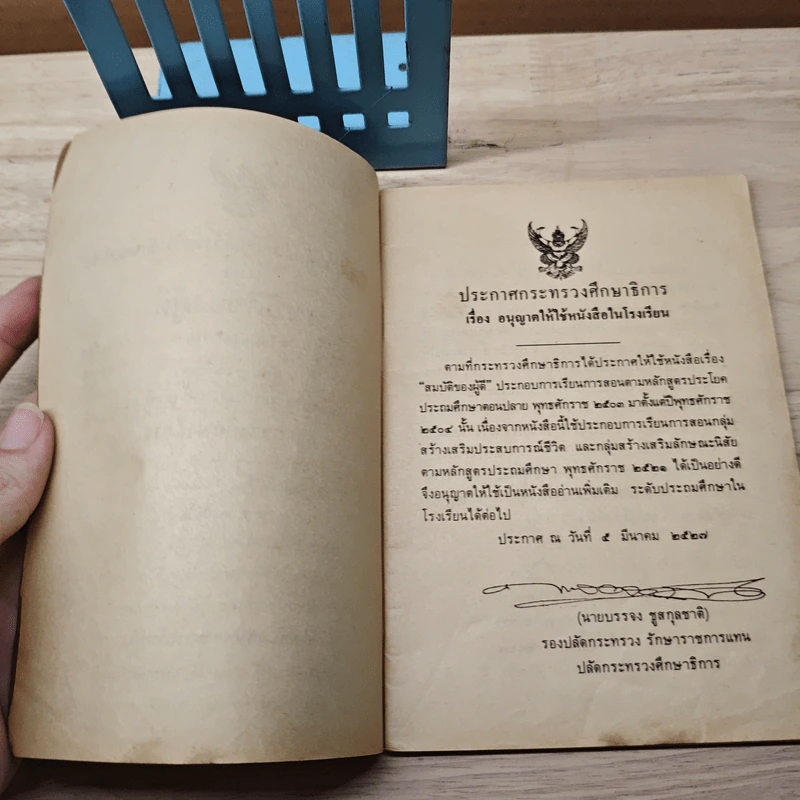 ประกาศกระทรวงศึกษาธิการ
เรื่อง อนุญาตให้ใช้หนังสือในโรงเรียน
ตามที่กระทรวงศึกษาธิการได้ประกาศให้ใช้หนังสือเรื่อง
“สมบัติของผู้ดี” ประกอบการเรียนการสอนตามหลักสูตรประโยค
ประถมศึกษาตอนปลาย พุทธศักราช ๒๕๐๓ มาตั้งแต่ปีพุทธศักราช
๒๕๐๔ นั้น เนื่องจากหนังสือนี้ใช้ประกอบการเรียนการสอนกลุ่ม
สร้างเสริมประสบการณ์ชีวิต และกลุ่มสร้างเสริมลักษณะนิสัย
ตามหลักสูตรประถมศึกษา พุทธศักราช ๒๕๒๑ ได้เป็นอย่างดี
จึงอนุญาตให้ใช้เป็นหนังสืออ่านเพิ่มเติม ระดับประถมศึกษาใน
โรงเรียนได้ต่อไป
ประกาศ ณ วันที่ ๕ มีนาคม ๒๕๒๗
(นายบรรจง ชูสกุลชาติ)
รองปลัดกระทรวง รักษาราชการแทน
ปลัดกระทรวงศึกษาธิการ